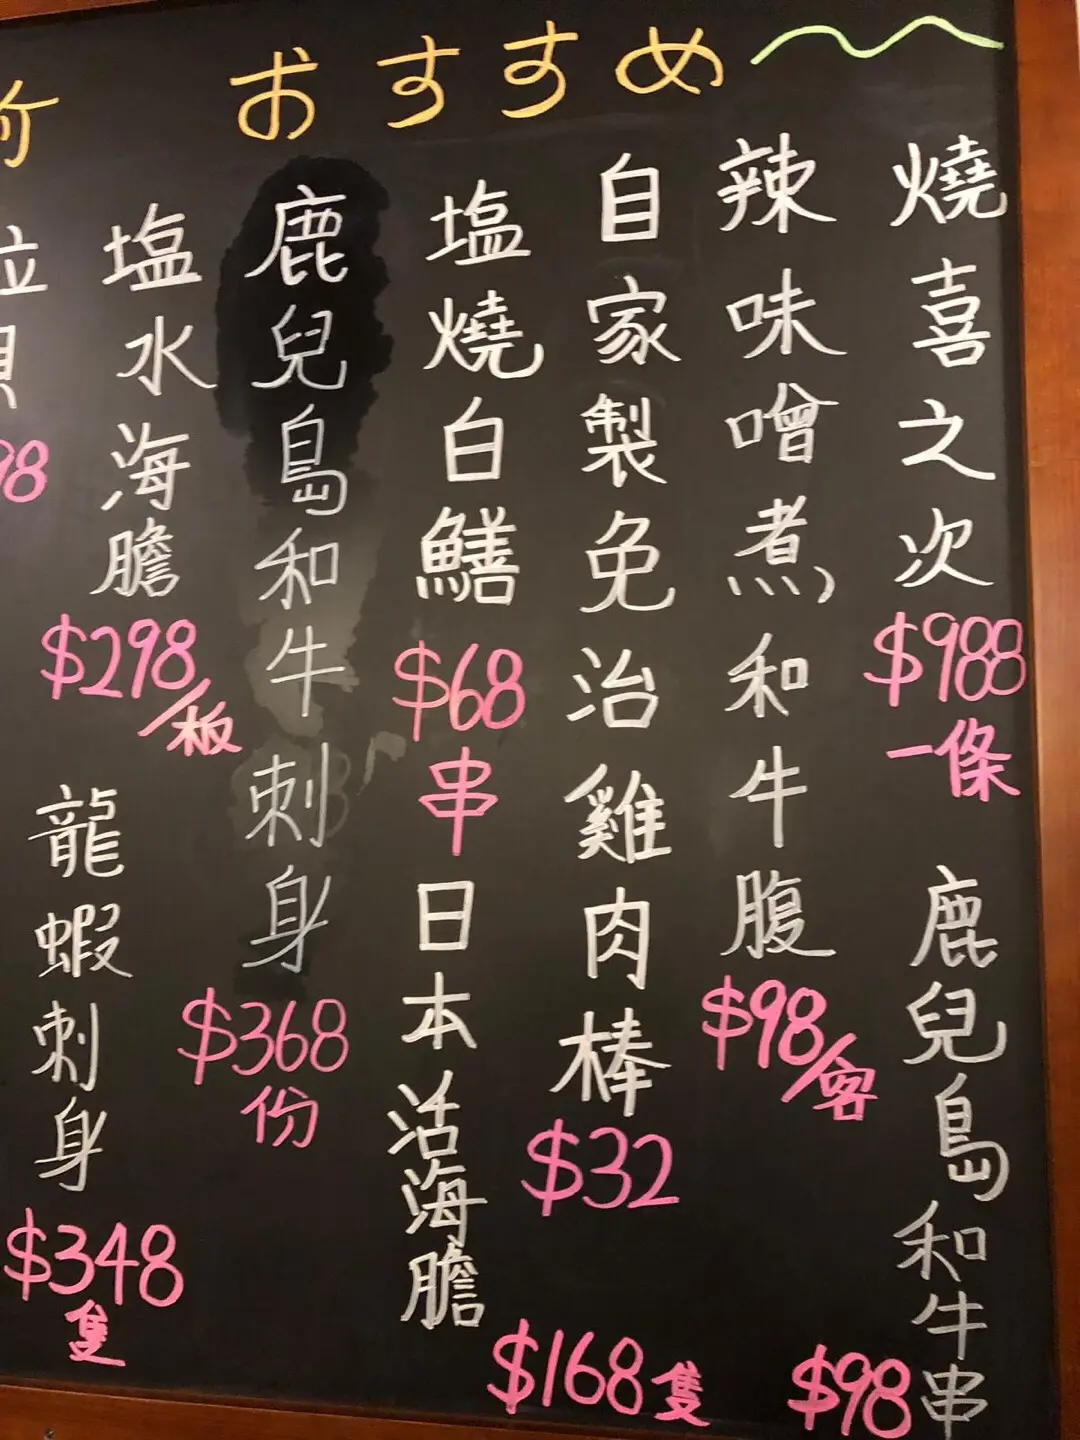 おすすめ
燒喜之次
$988
一條
鹿兒島和牛串
$98
辣味噌煮、和牛腹
$98/客
自家製免治雞肉棒
$32
塩燒白鱔
$68
串
日本活海膽
$168隻
鹿兒島和牛刺身
$368
份
塩水海膽
$298/板
龍蝦刺身
$348
隻